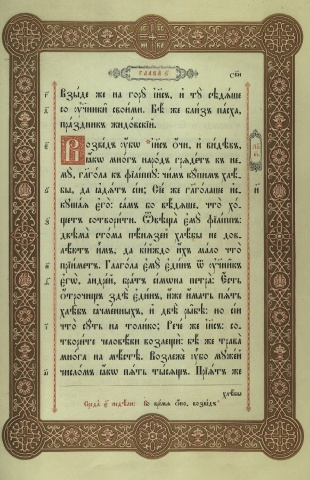 ГЛАВА ѕ҃
Взыде же на гору і҆и҃съ, и҆ ту сѣдѧше
со ѹ҆ченики своими. Бѣ же близъ пасха,
праздникъ жидовскїй.
Возведъ ѹ҆бѡ і҆и҃съ ѻ҆чи, и҆ видѣвъ,
ꙗ҆кѡ многъ народъ грѧдетъ къ не-
му, гл҃гола къ фїлїппу: чимъ купимъ хлѣ-
бы, да ꙗ҆дѧтъ сїи; Сїе же гл҃голаше и҆с-
кушаѧ є҆го: самъ бо вѣдѧше, что хо-
щетъ сотворити. Ѿвѣща є҆му фїлїппъ:
двѣма стома пѣнѧзей хлѣбы не дов-
лѣютъ и҆мъ, да кїйждо и҆хъ мало что
прїиметъ. Глагола є҆му є҆динъ ѿ ѹ҆ченикъ
є҆гѡ, а҆ндрей, братъ сїмѡна петра: Есть
ѻ҆трочищъ здѣ є҆динъ, и҆же имать пѧть
хлѣбъ ꙗ҆чменныхъ, и҆ двѣ рыбѣ: но сїи
что суть на толико; Рече же і҆и҃съ: со-
творите человѣки возлещи: бѣ же трава
многа на мѣстѣ. Возлеже ѹ҆бо мужей
числомъ ꙗ҆кѡ пѧть тысѧщъ. Прїѧтъ же
хлѣбы
во времѧ ѻ҆но, возведъ